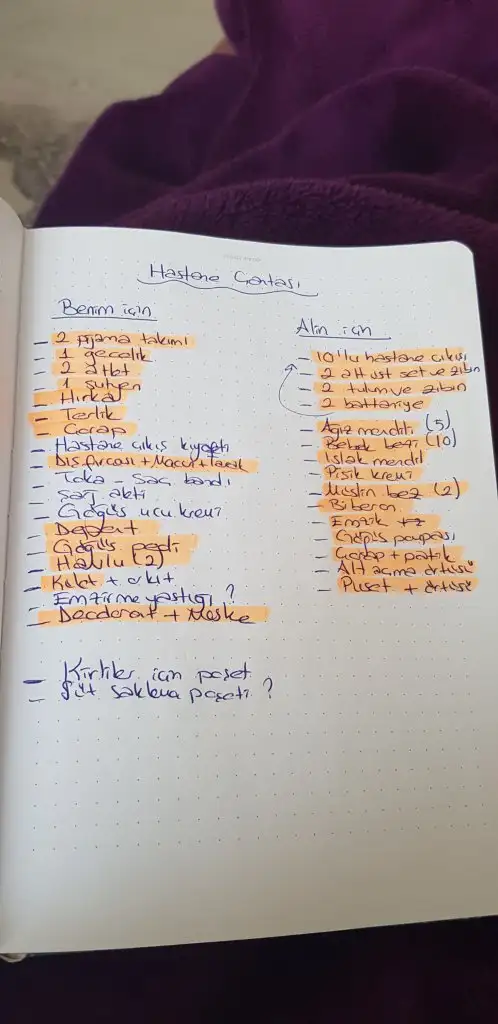 Hastane Çantası
Benim için
- 2 pijama takımı
- 1 gecelik
- 2 atlet
- 1 sütyen
- Hırka
- Terlik
- Çorap
- Hastane çıkış kıyafeti
- Diş fırçası + Macun + tarak
- Toka - Saç bandı
- Şarj aleti
- Göğüs ucu kremi
- Depent
- Göğüs pedi
- Havlu (2)
- Külot + orkit
- Emzirme yastığı ?
- Deodorat + Maske
- Kirliler için poşet
- Süt saklama poşeti ?
Alin için
- 10'lu hastane çıkışı
- 2 alt üst set ve zıbın
- 2 tulum ve zıbın
- 2 battaniye
- Ağız mendili (5)
- Bebek bezi (10)
- Islak mendil
- Pişik kremi
- Müslin bez (2)
- Biberon
- Emzik
- Göğüs pompası
- Çorap + patik
- Alt açma örtüsü
- Puset + örtüsü